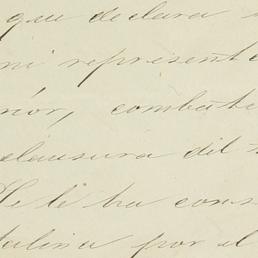 que declara
ni represent
rior, combate
clausura del
Se le ha cons
talina por el